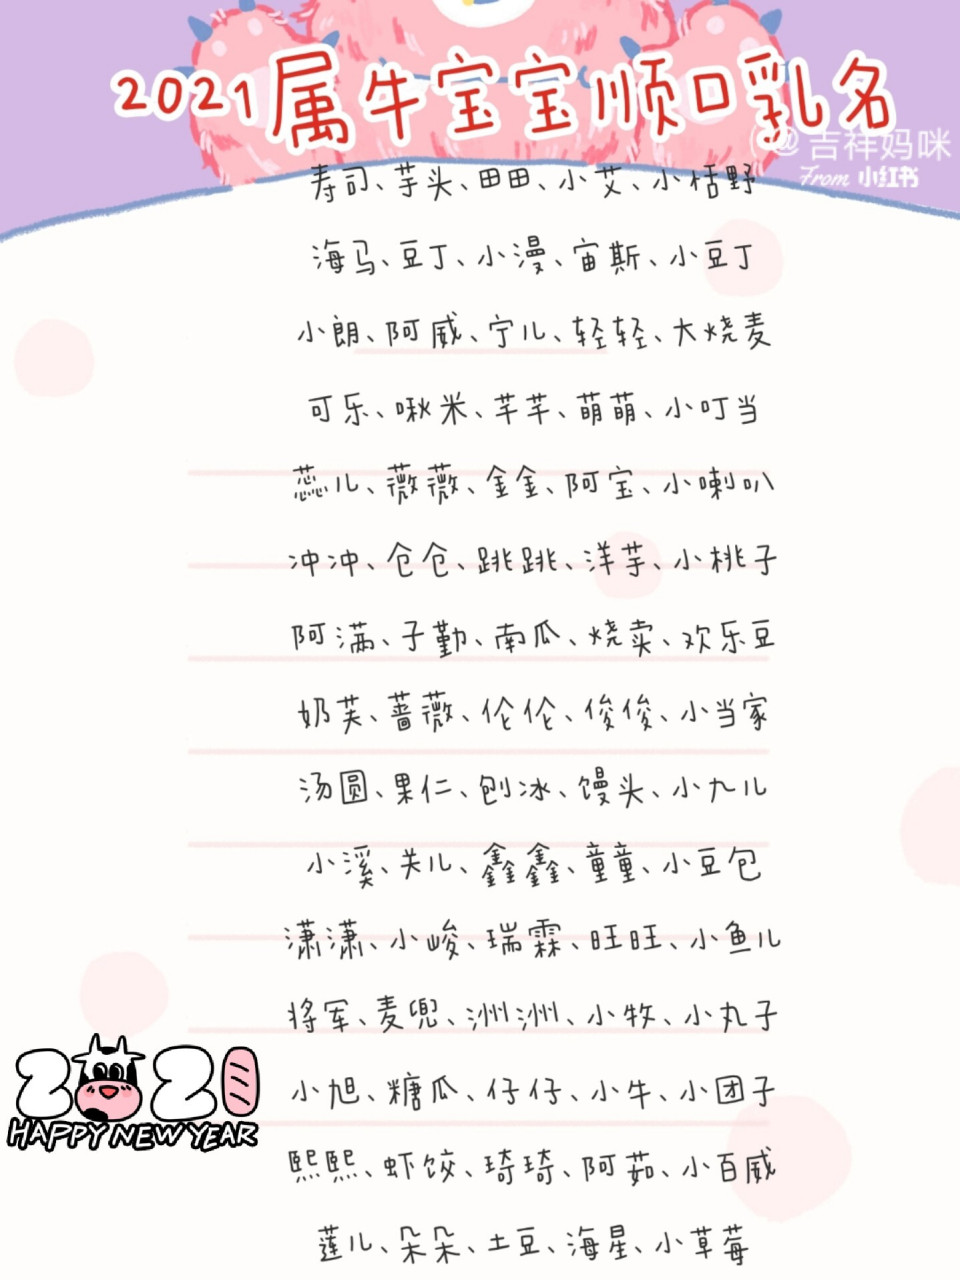 2021属牛宝宝顺口乳名
@吉祥妈咪
From 小红书
寿司、芋头、田田、小艾、小恬野
海马、豆丁、小漫、宙斯、小豆丁
小朗、阿威、宁儿、轻轻、大烧麦
可乐、啾米、芊芊、萌萌、小叮当
蕊儿、薇薇、金金、阿宝、小喇叭
冲冲、仓仓、跳跳、洋芋、小桃子
阿满、子勤、南瓜、烧卖、欢乐豆
奶芙、蔷薇、伦伦、俊俊、小当家
汤圆、果仁、刨冰、馒头、小九儿
小溪、关儿、鑫鑫、童童、小豆包
潇潇、小峻、瑞霖、旺旺、小鱼儿
将军、麦兜、洲洲、小牧、小丸子
小旭、糖瓜、仔仔、小牛、小团子
熙熙、虾饺、琦琦、阿茹、小百威
莲儿、朵朵、土豆、海星、小草莓
2021
HAPPY NEW YEAR